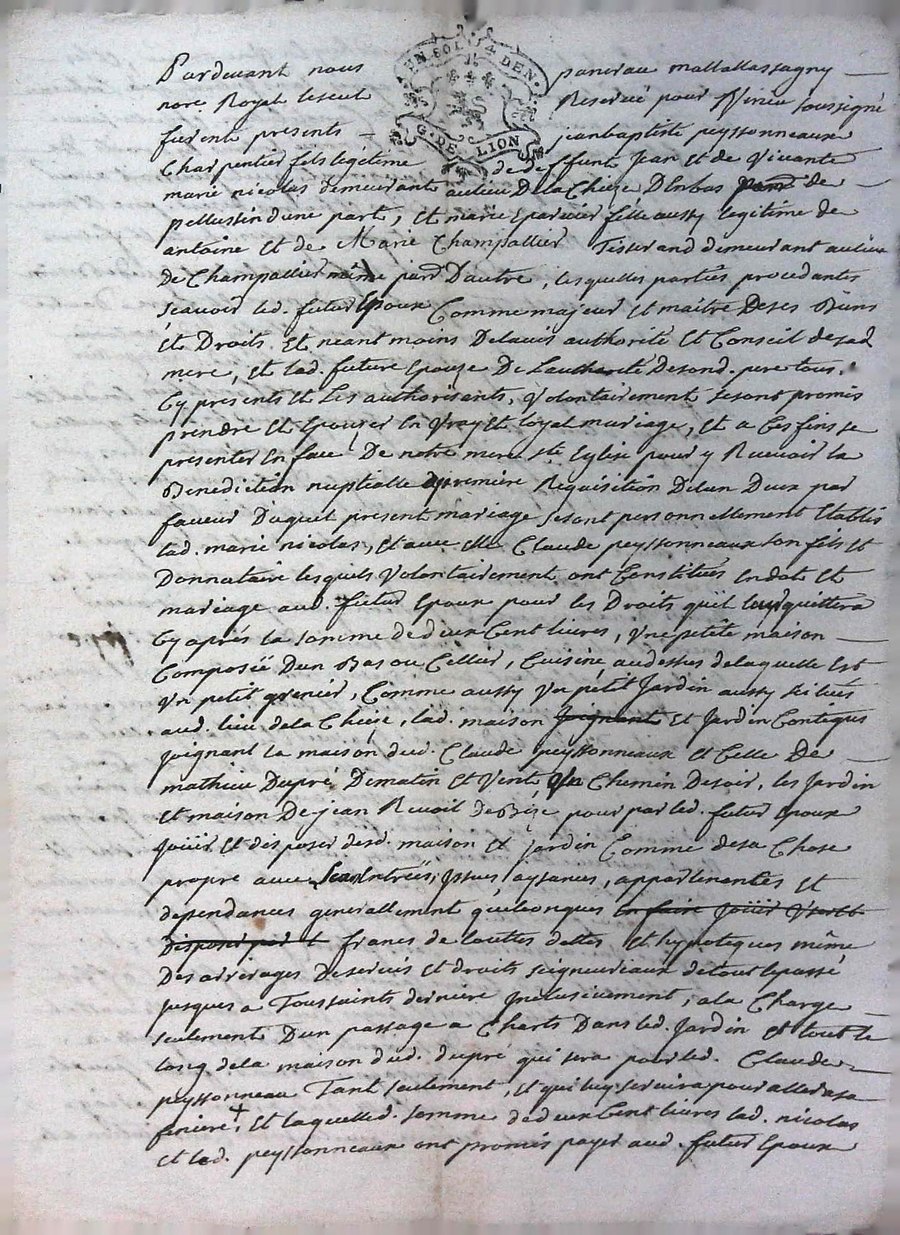 UN SOL 4 DEN.
G. DE LION
Pardevant nous pancrau mallassagny
nore Royal Reservé pour Virieu soussigné
furent presents jeanbaptiste peyssonneaux
Charpentier fils legitime de deffunt Jean Et de vivante
marie nicolas demeurant aulieu De la Chieze D'Enbas de
pellussin d'une part, Et marie Eparvier fille aussy legitime de
antoine Et de Marie Champallier Tisserand demeurant aulieu
de Champallier même pard D'autre, lesquelles parties procedantes
scavoir led. futur Epoux Comme majeur Et maitre Deses Biens
Et Droits, Et neant moins Delavis authorité Et Conseil desad
mere, Et lad. future Epouse De Lauthorité Desond. pere tous
Cy presents Et Les authorisants, Volontairement sesont promis
prendre Et Epouser En vray Et loyal mariage, Et a Ces fins se
presenter En face De notre mere ste Eglise pour y Recevoir la
Benediction nuptialle premiere Requisition Delun Deux par
faveur Duquel present mariage sesont personnellement Etablis
lad. marie nicolas, Et avec Elle Claude peyssonneaux son fils Et
Donnataire lesquels Volontairement ont Constitués En dot Et
mariage aud. futur Epoux pour les Droits quil leur quittera
Cy aprés la somme de deux Cent livres, Une petite maison
Composée D'un Bas ou Cellier, Cuisine audessus delaquelle Est
Un petit grenier, Comme aussy Un petit Jardin aussy situés
aud. lieu dela Chieze, lad. maison joignant Et Jardin Contigus
joignant la maison dud. Claude peyssonneaux Et Celle De
mathieu Dupré Dematin Et Vent, Chemin Desoir, les Jardin
Et maison De jean Revoil de Bize pour par led. futur Epoux
Joüir Et disposer desd. maison Et jardin Comme desa Chose
propre avec Entrées, Issues, aysances, appartenances Et
dependances generallement quelconques En faire Joüir
Disposer par Et francs de touttes dettes Et hypoteques même
Des arrérages De servis Et droits seigneuriaux detout Lepassé
jusques a Toussaints derniere Inclusivement, a la Charge
seulement D'un passage a Charts Dans led. Jardin Et tout le
long dela maison dud. dupré qui sera pour led. Claude
peyssonneau Tant seulement, Et qui luy servira pour aller a sa
feniere, Et laquelled. somme de deux Cent livres lad. nicolas
Et led. peyssonneaux ont promis payer aud. futur Epoux